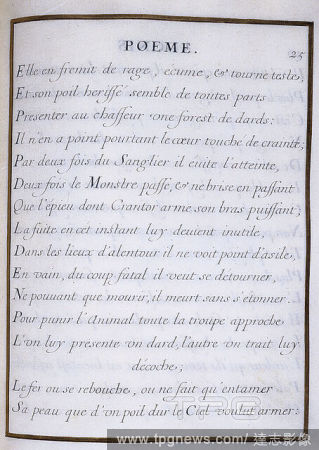 POEME.
25
Elle en fremit de rage, écume, & tourne teste,
Et son poil herissé semble de toutes parts
Presenter au chasseur une forest de dards:
Il n'en a point pourtant le cœur touché de crainte;
Par deux fois du Sanglier il évite l'atteinte,
Deux fois le Monstre passe, & ne brise en passant
Que l'épieu dont Crantor arme son bras puissant;
La fuite en cet instant luy devient inutile,
Dans les lieux d'alentour il ne voit point d'asile,
En vain, du coup fatal il veut se detourner,
Ne pouvant que mourir, il meurt sans s'étonner.
Pour punir l'Animal toute la troupe approche
L'un luy presente un dard, l'autre un trait luy
décoche;
Le fer ou se rebouche, ou ne fait qu'entamer
Sa peau que d'un poil dur le Ciel voulut armer:
TPG
www.tpgnews.com / 達志影像